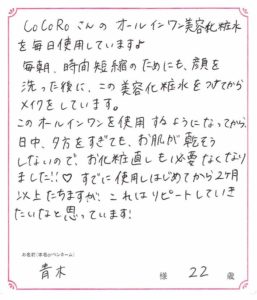 CoCoRoさんの オールインワン美容化粧水
を毎日使用していますよ
毎朝、時間短縮のためにも、顔を
洗った後に、この美容化粧水をつけてから
メイクをしています。
このオールインワンを使用するようになってから、
日中、夕方をすぎても、お肌が乾そう
しないので、お化粧直しも必要なくなり
ました!!♡ すでに使用しはじめてから2ヶ月
以上たちますが、これはリピートしていき
たいなと思っています!
お名前(本名orペンネーム)
青木 様 22 歳